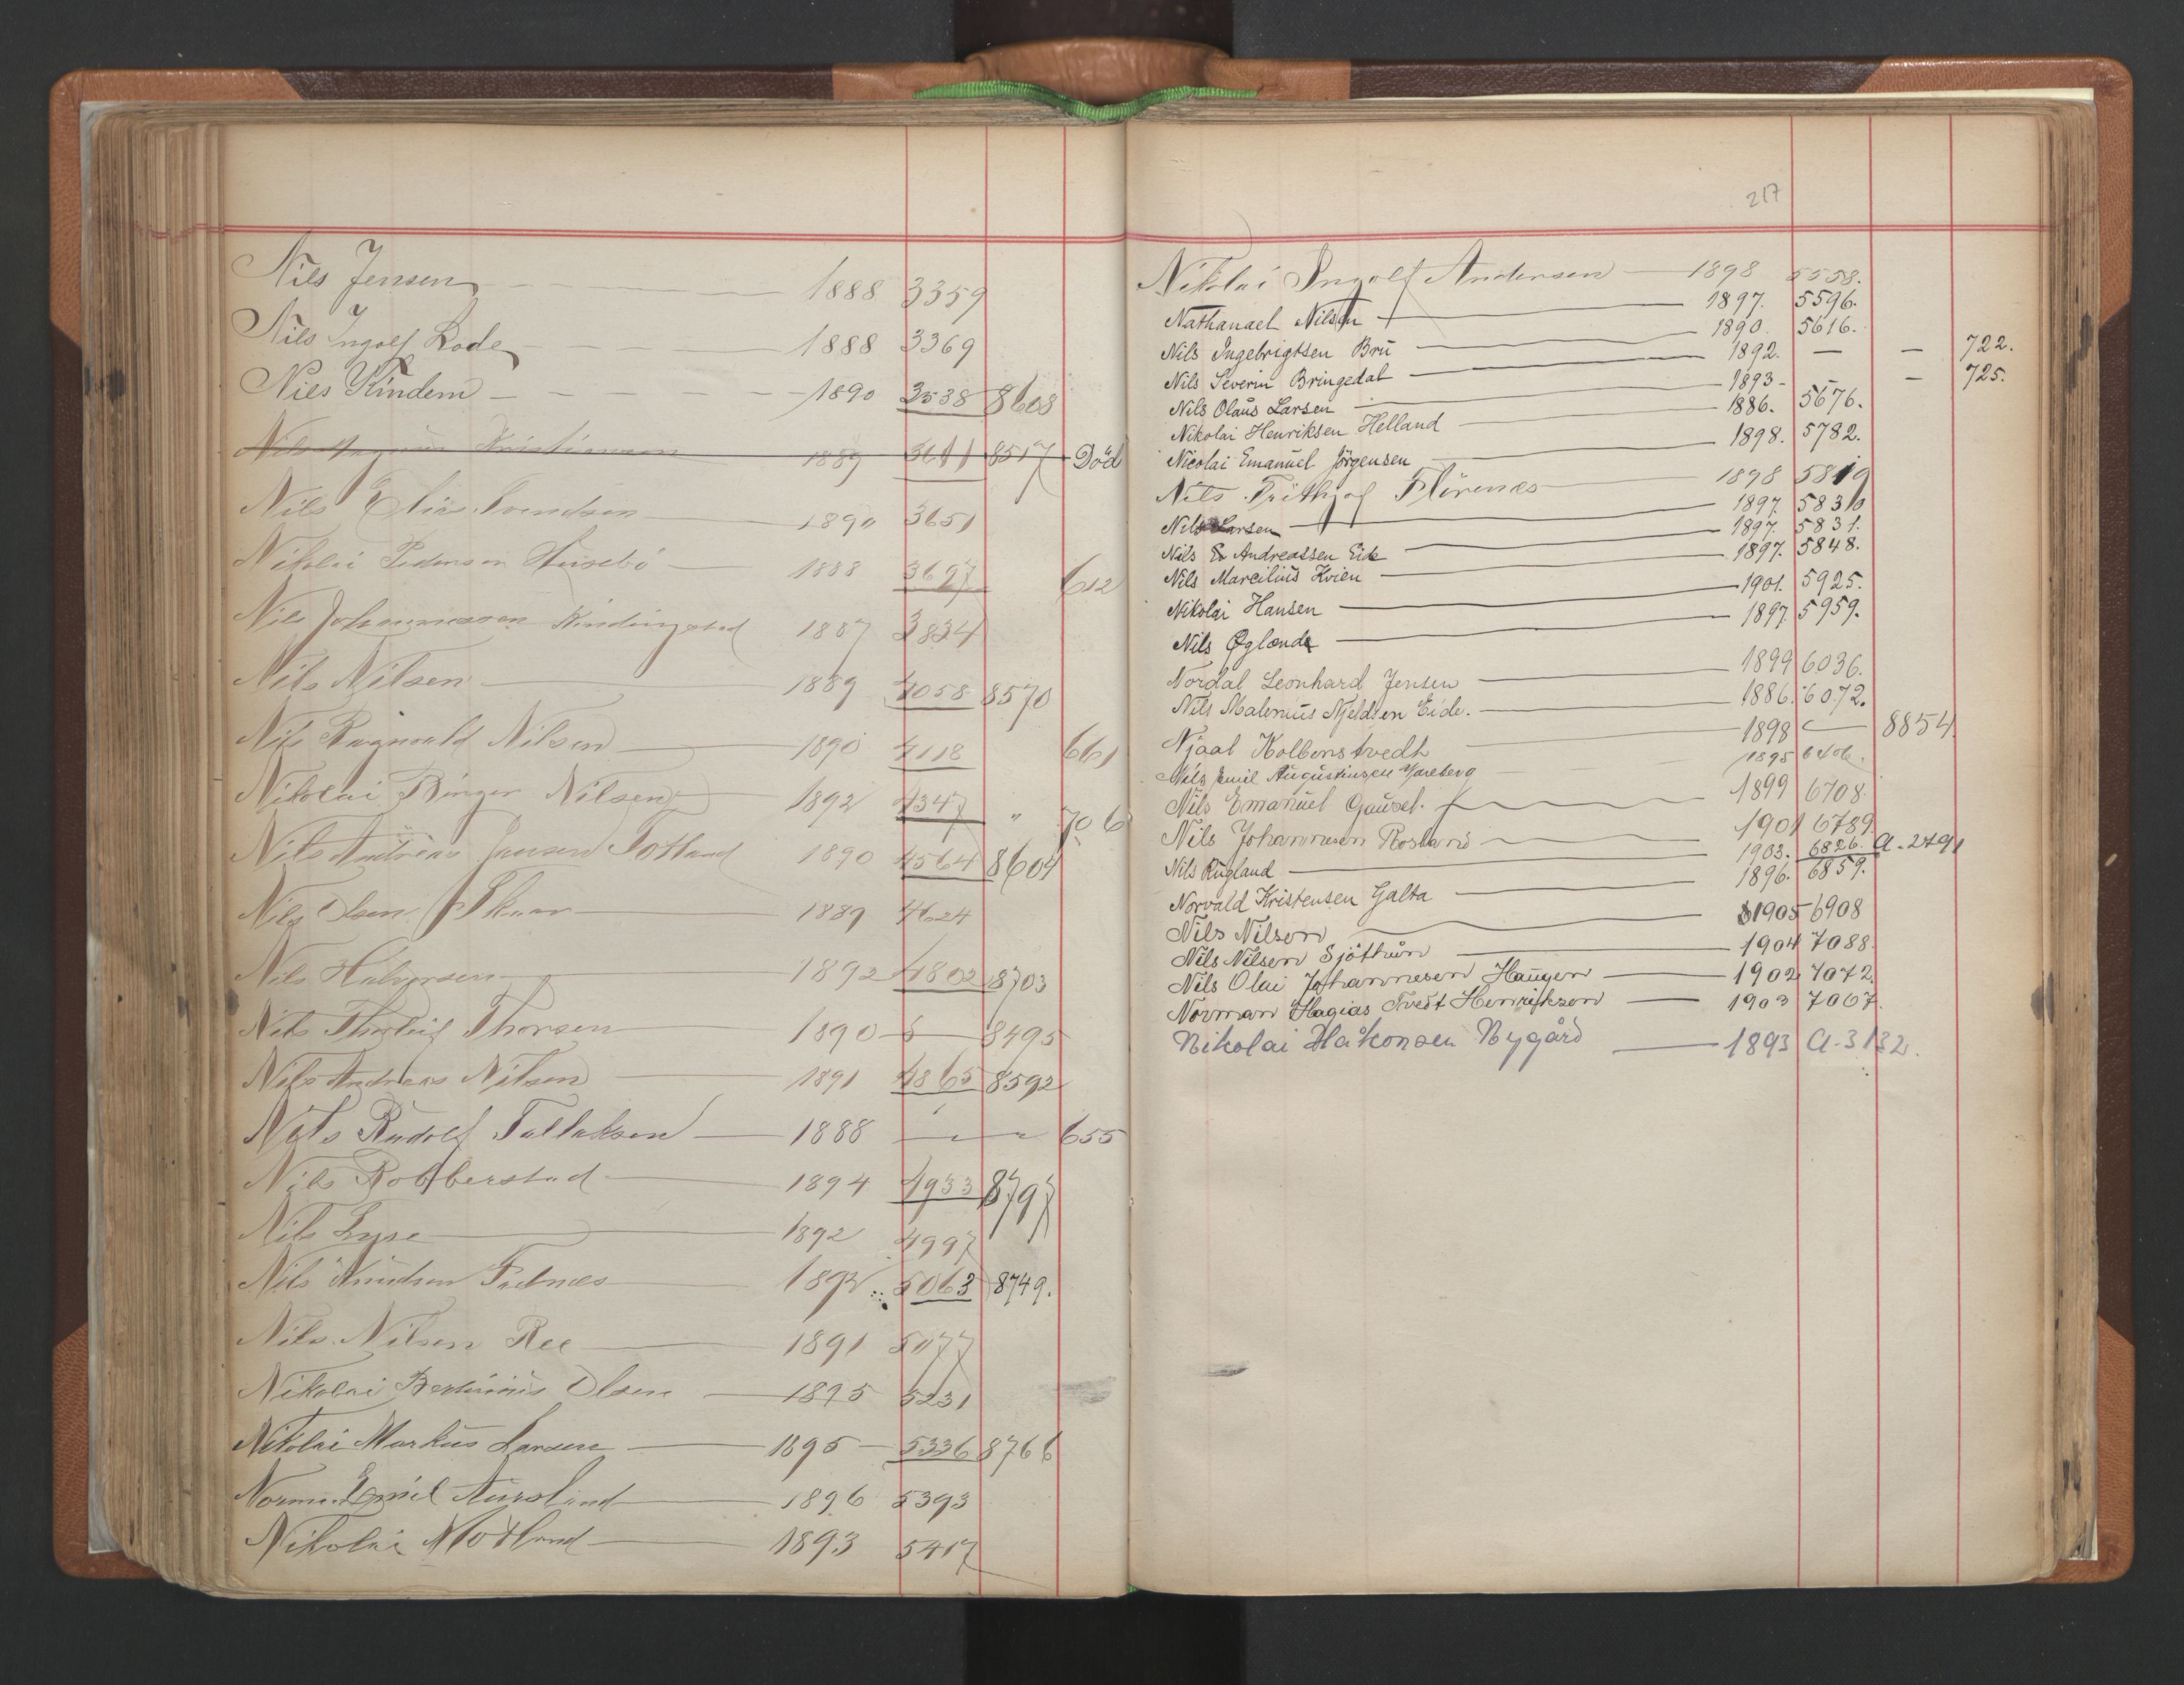 Nils Jensen 1888 3359
Nils Ingolf Lode 1888 3369
Niels Kindem 1890 3538 8608
Nils Magnus Kristiansen 1889 3611 8517 Död
Nils Elias Svendsen 1890 3651
Nikolai Pedersen Husebö 1888 3697 612
Nils Johannessen Kindingstad 1887 3834
Nils Nilsen 1889 4058 8570
Nils Ragnvald Nilsen 1890 4118 661
Nikolai Birger Nilsen 1892 4347 " 706
Nils Andreas Jansen Totland 1890 4564 8604
Nils Olsen 1889 4624
Nils Halvorsen 1892 4802 8703
Nils Thorleif Thorsen 1890 8495
Nils Andreas Nilsen 1891 4865 8592
Nils Rudolf Tallaksen 1888 655
Nils Robberstad 1894 4933 8797
Nils Lyse 1892 4997
Nils Knudsen 1892 5063 8749.
Nils Nilsen Ree 1891 5077
Nikolai Olsen 1895 5231
Nikolai Markus Larsen 1895 5336 8766
Norman Emil 1896 5393
Nikolai Motland 1893 5417
217
Nikolai Ingolf Andersen 1898 5558.
Nathanael Nilsen 1897. 5596.
Nils Ingebrigtsen Bru 1890. 5616.
Nils Severin Bringedal 1892. — — 722.
Nils Olaus Larsen 1893 - — — 725.
Nikolai Henriksen Helland 1886. 5676.
Nicolai Emanuel Jörgensen 1898. 5782.
Nils Frithjof 1898 5819
Nils Larsen 1897. 5830
Nils Andreassen Eide 1897. 5831.
Nils Marcilius Kvien 1897. 5848.
Nikolai Hansen 1901. 5925.
Nils Øglænd 1897. 5959.
Nordal Leonhard Jensen 1899 6036.
Nils Malenius Njeldsen Eide. 1886. 6072.
Njaal Kolbenstvedt 1898 — 8854
Nils Emil Augustinsen Vareberg 1895 6406.
Nils Emanuel Gausel. 1899 6708.
Nils Johannesen Rosland 1901 6789
Nils Rugland 1903. 6826. A. 2791
Norvald Kristensen Galta 1896. 6859.
Nils Nilsen 1905 6908
Nils Nilsen Sjöthun 1904 7088.
Nils Olai Johannesen Haugen 1902 7072.
Norman Hagias Tvedt Henriksen 1903 7067.
Nikolai Håkonsen Nygård 1893 A. 3132.